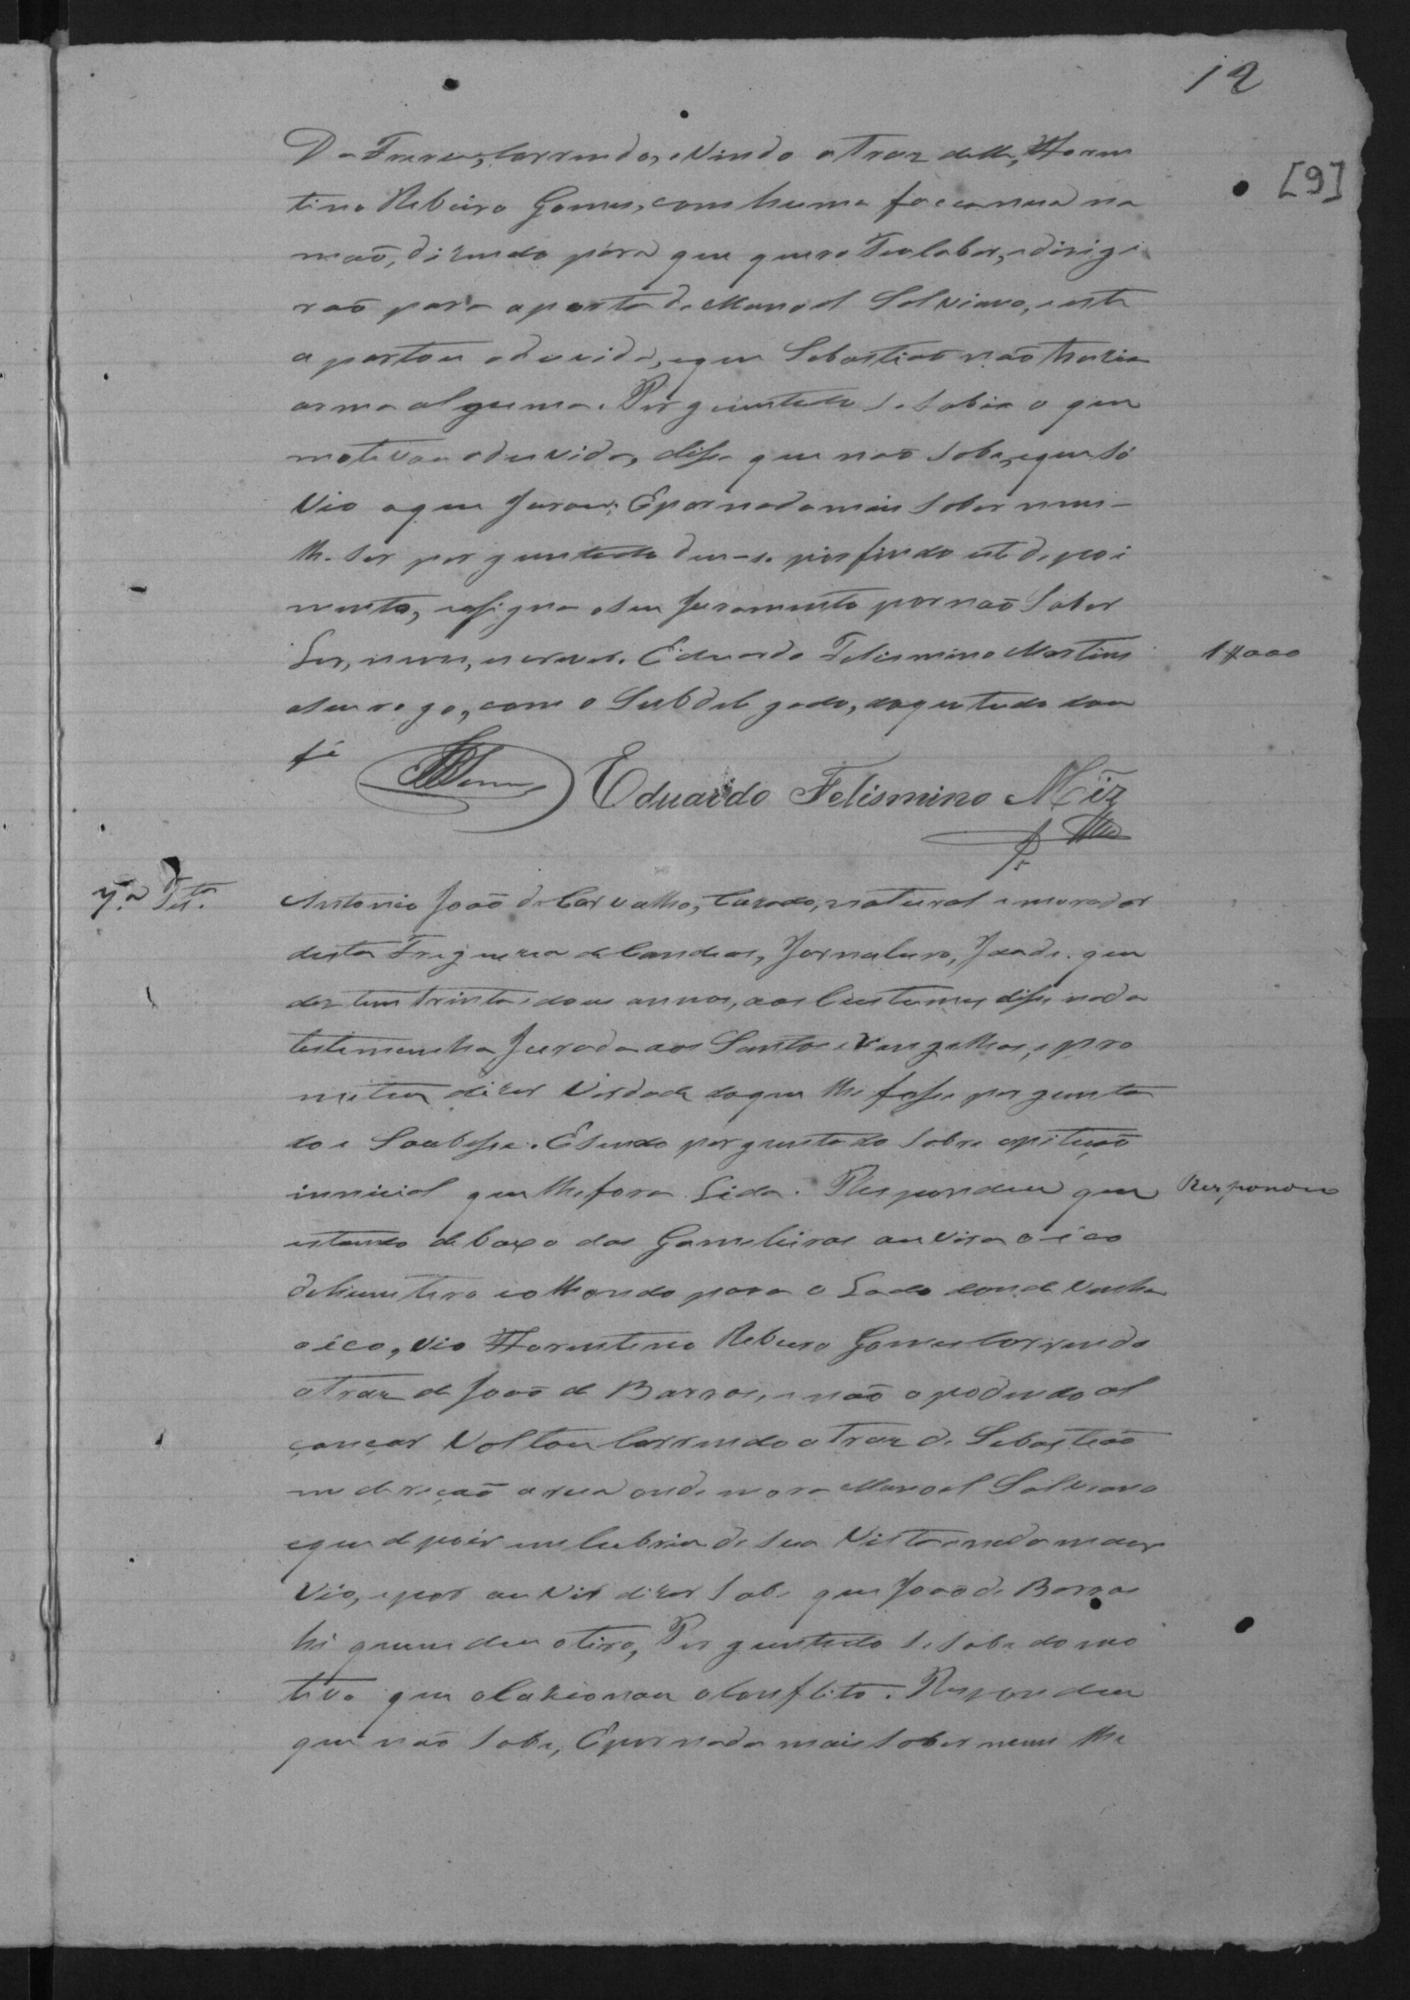 12
[9]
Da Frexeu, Correndo, e Vindo a Traz delle, Floren
tino Ribeiro Gomes, com huma faca nua na
mão, dizendo pára que quero Tealabar, e dirigi
rão para a porta de Manoel Salviano, e este
apartou aduvida, e que Sebastião não trazia
arma alguma. Perguntado se sabia o que
motivou aduvida, disse que não sabe, e que só
Vio o que Jurou. E por nada mais saber nem
lhe ser perguntado deu-se por findo este depoi
mento, e assigna o seu Juramento por não Saber
Ler, nem, escrever. Eduardo Felismino Martins
1#000
aseu rogo, com o Subdelegado, do que tudo dou
fé
Eduardo Felismino Miz
7.ª Test.
Antonio João de Carvalho, Cazado, natural e morador
desta Freguezia de Candeas, Jornaleiro, Idade que
diz tem trinta e dous annos, aos Custumes disse nada
testemunha Jurada aos Santos e Vangelhos, e pro
meteu dizer Verdade do que lhe fosse pergunta
do e Soubesse. E sendo perguntado sobre apetição
innicial que lhe fora Lida. Respondeu que
Respondeu
estando debaxo das Gamelleiras ouvira o éco
de hum tiro e olhando para o Lado donde Vinha
o éco, vio Florentino Ribeiro Gomes Correndo
a traz de João de Barros, e não o podendo al
cançar Voltou Correndo a traz de Sebastião
em direcão a rua onde mora Manoel Salviano
e que depois encubriu de sua Vista e nada mais
Vio, e por ouvir dizer sabe que João de Barros
hé quem deu o tiro, Perguntado se sabe do mo
tivo que olazionou o Conflito. Respondeu
que não sabe, E por nada mais saber nem lhe